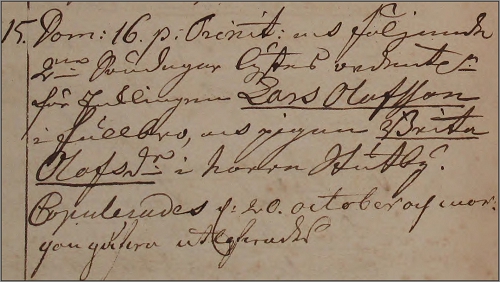 15. Dom: 16. p: Trinit: och följande
2ne Söndagar lystes ordentel:
för Ynklingen Lars Olofsson
i Fullbro, och pigan Brita
Olofsdr i Norra Stutby.
Copulerades d: 20. october och mor-
gongåfva